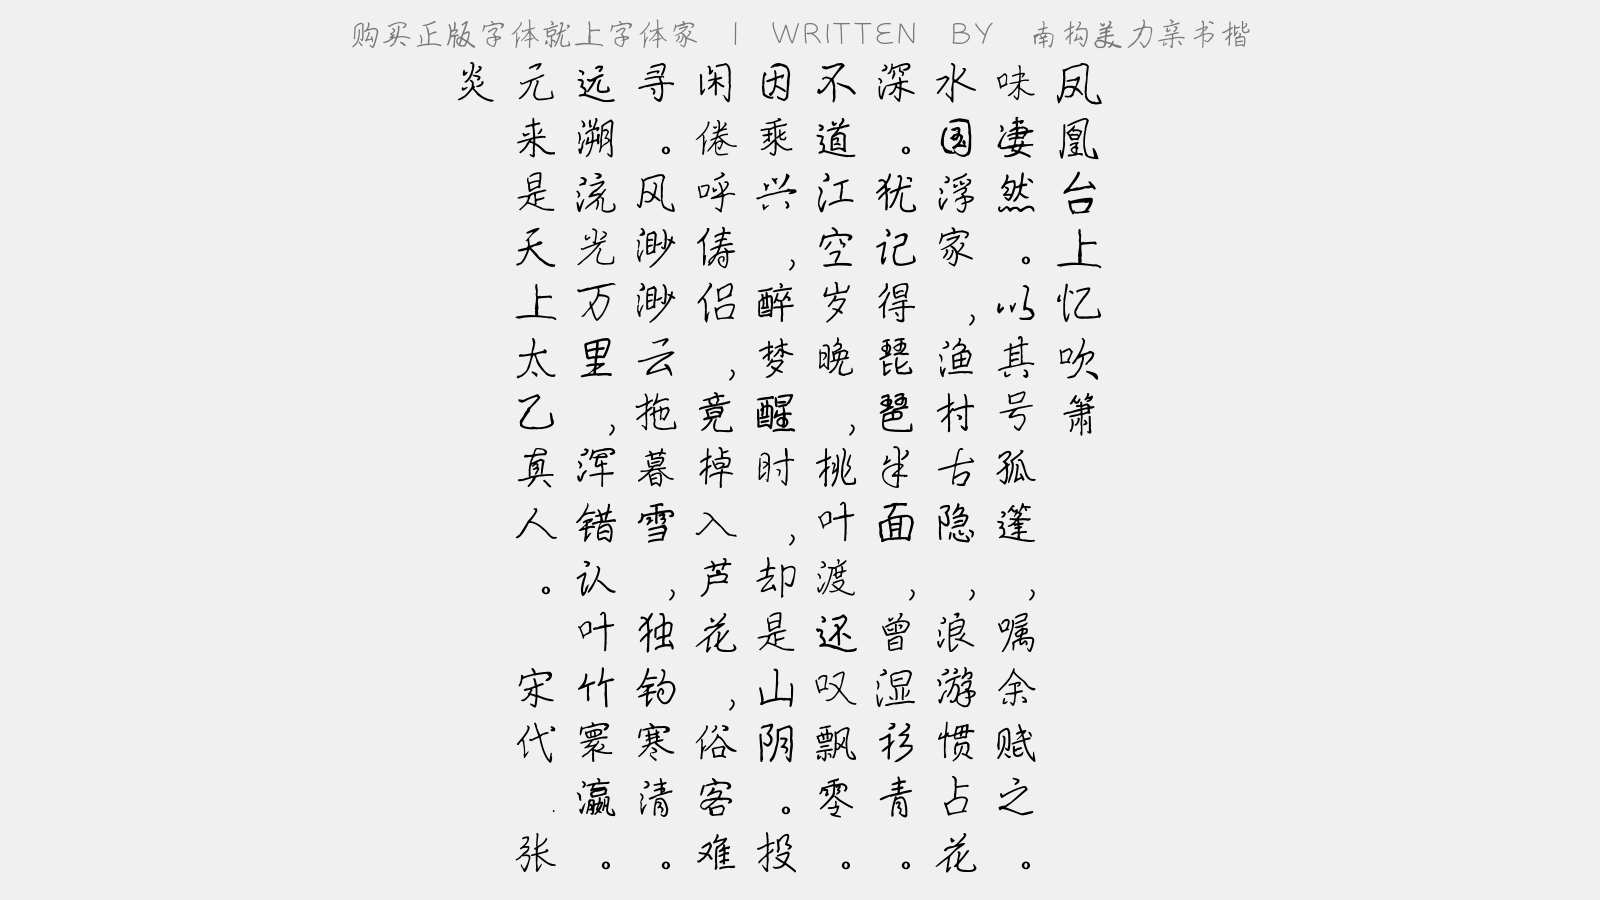 购买正版字体就上字体家 | WRITTEN BY 南构美力亲书楷
凤凰台上忆吹箫
味凄然。以其号孤篷，嘱余赋之。
水国浮家，渔村古隐，浪游惯占花
深。犹记得琵琶半面，曾湿衫青。
不道江空岁晚，桃叶渡还叹飘零。
因乘兴，醉梦醒时，却是山阴。投
闲倦呼俦侣，竟棹入芦花，俗客难
寻。风渺渺云拖暮雪，独钓寒清。
远溯流光万里，浑错认叶竹寰瀛。
元来是天上太乙真人。 宋代.张
炎